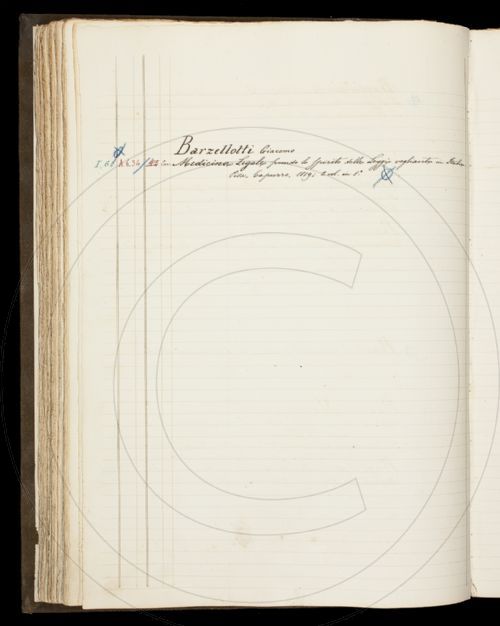 Barzellotti Giacomo
I, 6 Medicina Legale secondo lo Spirito delle Leggi veglianti in Italia
Pisa, Capurro, 1819, 2 vol. in 8°